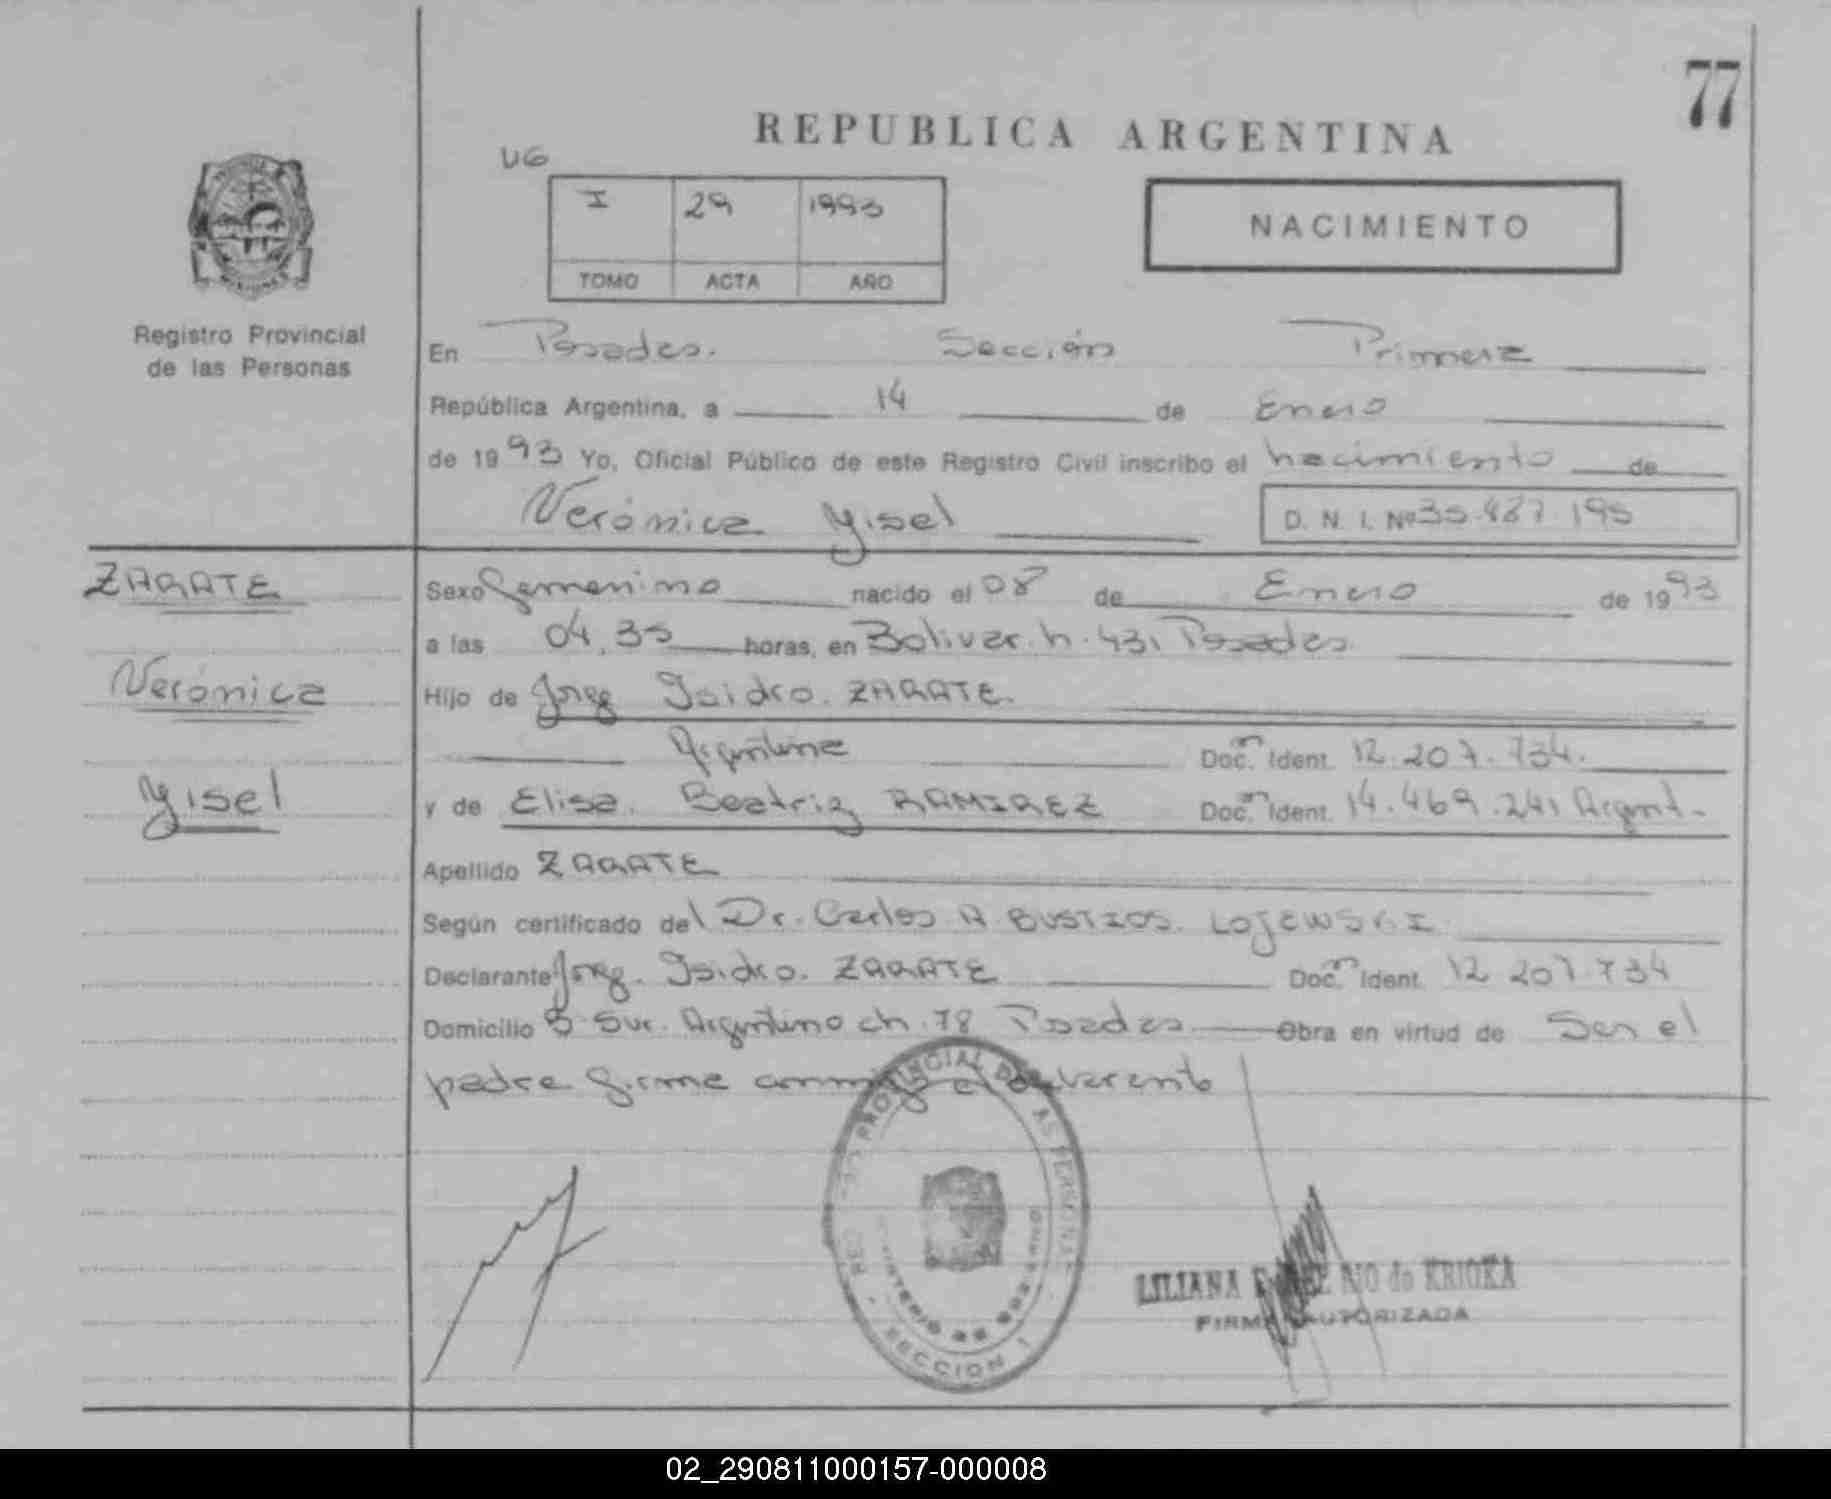 77
REPUBLICA ARGENTINA
UG
I 29 1993
TOMO ACTA AÑO
NACIMIENTO
Registro Provincial
de las Personas
En Posadas. Sección Primera
República Argentina, a 14 de Enero
de 1993 Yo, Oficial Público de este Registro Civil inscribo el nacimiento de
Verónica Yisel D. N. I. Nº 35.487.195
ZARATE
Verónica
Yisel
Sexo femenino nacido el 08 de Enero de 1993
a las 04,35 horas, en Bolivar. n. 431 Posadas
Hijo de Jorge Isidro. ZARATE.
Argentina Doc. Ident. 12.207.734.
y de Elisa. Beatriz RAMIREZ Doc. Ident. 14.469.241 Argent.
Apellido ZARATE
Según certificado del Dr. Carlos A BUSTIOS. LOJEWSKI
Declarante Jorge. Isidro. ZARATE Doc. Ident. 12 207.734
Domicilio B. Sur. Argentino ch. 78 Posadas Obra en virtud de Ser el
padre firma conmigo el declarante
PROVINCIAL DE LAS PERSONAS
MINISTERIO DE GOBIERNO
SECCION 1
LILIANA de KRIOKA
FIRMA AUTORIZADA
02_290811000157-000008